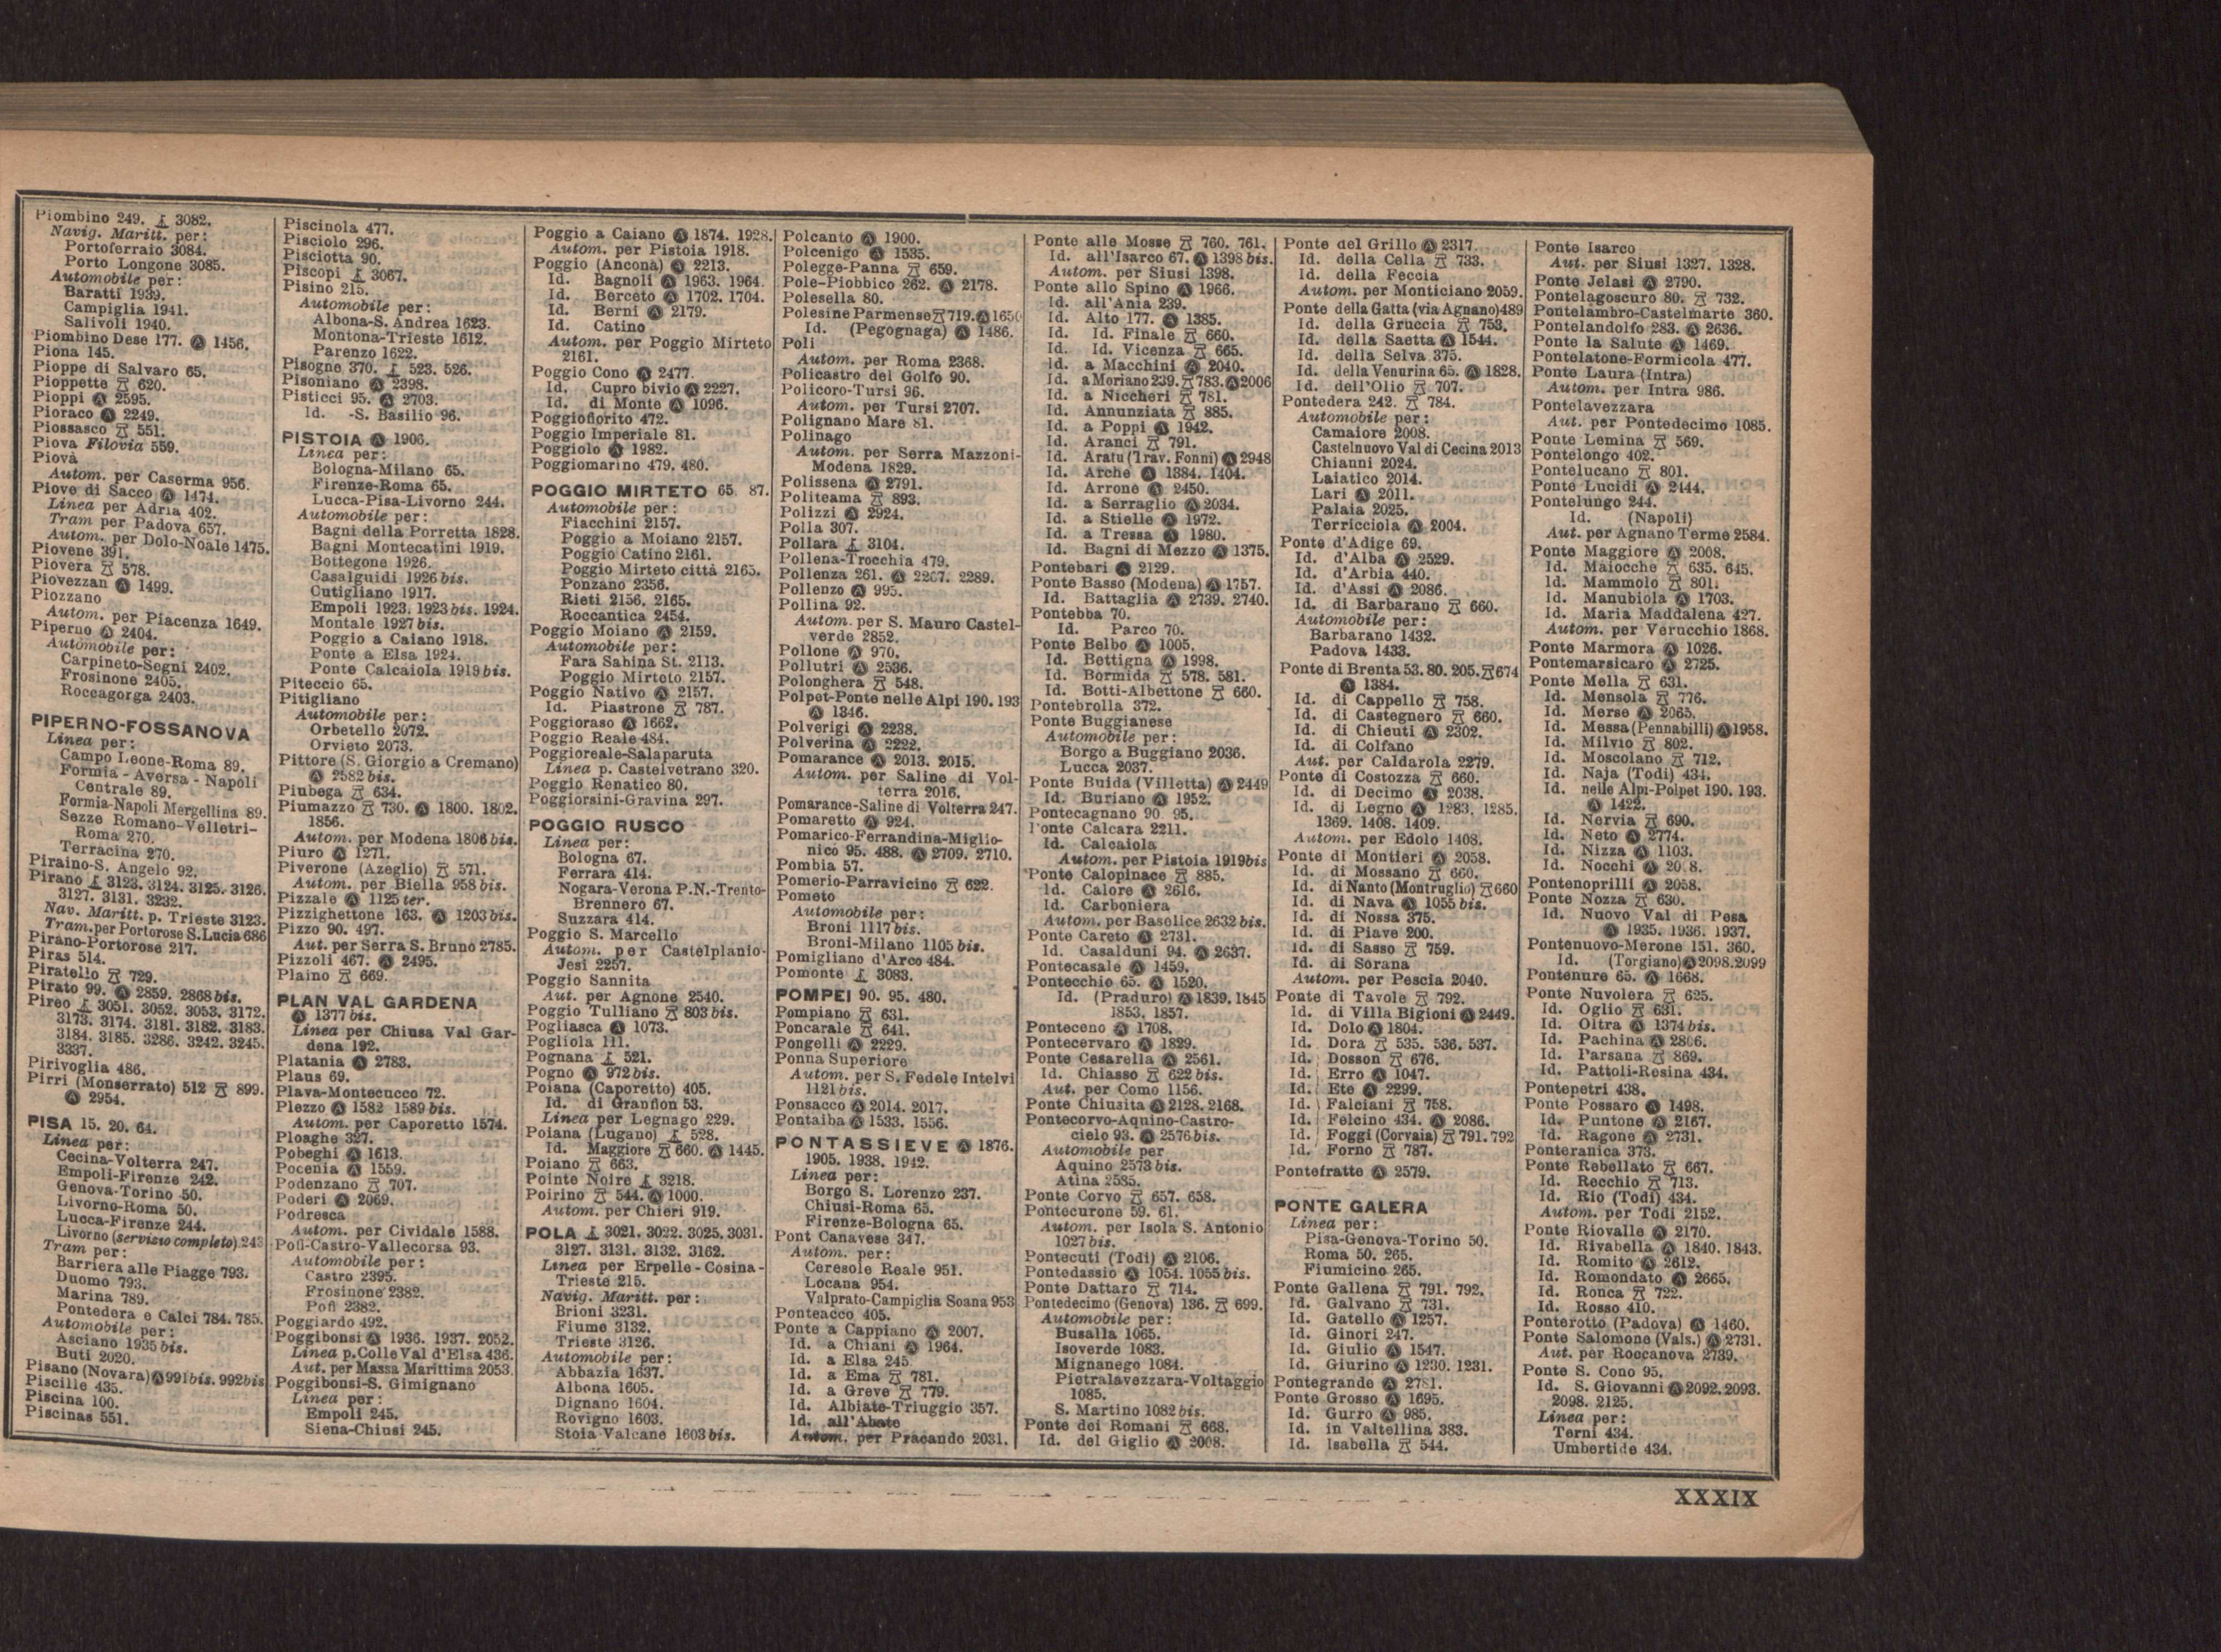 Piombino 249. ⚓ 3082.
Navig. Maritt. per:
Portoferraio 3084.
Porto Longone 3085.
Automobile per:
Baratti 1939.
Campiglia 1941.
Salivoli 1940.
Piombino Dese 177. Ⓐ 1456.
Piona 145.
Pioppe di Salvaro 65.
Pioppette 620.
Pioppi Ⓐ 2595.
Pioraco Ⓐ 2249.
Piossasco 551.
Piova Filovia 559.
Piovà
Autom. per Caserma 956.
Piove di Sacco Ⓐ 1474.
Linea per Adria 402.
Tram per Padova 657.
Autom. per Dolo-Noale 1475.
Piovene 391.
Piovera 578.
Piovezzan Ⓐ 1499.
Piozzano
Autom. per Piacenza 1649.
Piperno Ⓐ 2404.
Automobile per:
Carpineto-Segni 2402.
Frosinone 2405.
Roccagorga 2403.
PIPERNO-FOSSANOVA
Linea per:
Campo Leone-Roma 89.
Formia - Aversa - Napoli
Centrale 89.
Formia-Napoli Mergellina 89.
Sezze Romano-Velletri-
Roma 270.
Terracina 270.
Piraino-S. Angelo 92.
Pirano ⚓ 3123. 3124. 3125. 3126.
3127. 3131. 3232.
Nav. Maritt. p. Trieste 3123.
Tram. per Portorose S. Lucia 686
Pirano-Portorose 217.
Piras 514.
Piratello 729.
Pirato 99. Ⓐ 2859. 2868 bis.
Pireo ⚓ 3051. 3052. 3053. 3172.
3173. 3174. 3181. 3182. 3183.
3184. 3185. 3286. 3242. 3245.
3337.
Pirivoglia 486.
Pirri (Monserrato) 512 899.
Ⓐ 2954.
PISA 15. 20. 64.
Linea per:
Cecina-Volterra 247.
Empoli-Firenze 242.
Genova-Torino 50.
Livorno-Roma 50.
Lucca-Firenze 244.
Livorno (servizio completo) 243
Tram per:
Barriera alle Piagge 793.
Duomo 793.
Marina 789.
Pontedera e Calci 784. 785.
Automobile per:
Asciano 1935 bis.
Buti 2020.
Pisano (Novara) Ⓐ 991 bis. 992 bis
Piscille 435.
Piscina 100.
Piscinas 551.
Piscinola 477.
Pisciolo 296.
Pisciotta 90.
Piscopi ⚓ 3067.
Pisino 215.
Automobile per:
Albona-S. Andrea 1623.
Montona-Trieste 1612.
Parenzo 1622.
Pisogne 370. ⚓ 523. 526.
Pisoniano Ⓐ 2398.
Pisticci 95. Ⓐ 2703.
Id. -S. Basilio 96.
PISTOIA Ⓐ 1906.
Linea per:
Bologna-Milano 65.
Firenze-Roma 65.
Lucca-Pisa-Livorno 244.
Automobile per:
Bagni della Porretta 1828.
Bagni Montecatini 1919.
Bottegone 1926.
Casalguidi 1926 bis.
Cutigliano 1917.
Empoli 1923. 1923 bis. 1924.
Montale 1927 bis.
Poggio a Caiano 1918.
Ponte a Elsa 1924.
Ponte Calcaiola 1919 bis.
Piteccio 65.
Pitigliano
Automobile per:
Orbetello 2072.
Orvieto 2073.
Pittore (S. Giorgio a Cremano)
Ⓐ 2582 bis.
Piubega 634.
Piumazzo 730. Ⓐ 1800. 1802.
1856.
Autom. per Modena 1806 bis.
Piuro Ⓐ 1271.
Piverone (Azeglio) 571.
Autom. per Biella 958 bis.
Pizzale Ⓐ 1125 ter.
Pizzighettone 163. Ⓐ 1203 bis.
Pizzo 90. 497.
Aut. per Serra S. Bruno 2785.
Pizzoli 467. Ⓐ 2495.
Plaino 669.
PLAN VAL GARDENA
Ⓐ 1377 bis.
Linea per Chiusa Val Gar-
dena 192.
Platania Ⓐ 2783.
Plaus 69.
Plava-Montecucco 72.
Plezzo Ⓐ 1582 1589 bis.
Autom. per Caporetto 1574.
Ploaghe 327.
Pobeghi Ⓐ 1613.
Pocenia Ⓐ 1559.
Podenzano 707.
Poderi Ⓐ 2069.
Podresca
Autom. per Cividale 1588.
Pofi-Castro-Vallecorsa 93.
Automobile per:
Castro 2395.
Frosinone 2382.
Pofi 2382.
Poggiardo 492.
Poggibonsi Ⓐ 1936. 1937. 2052.
Linea p. Colle Val d'Elsa 436.
Aut. per Massa Marittima 2053.
Poggibonsi-S. Gimignano
Linea per:
Empoli 245.
Siena-Chiusi 245.
Poggio a Caiano Ⓐ 1874. 1928.
Autom. per Pistoia 1918.
Poggio (Ancona) Ⓐ 2213.
Id. Bagnoli Ⓐ 1963. 1964.
Id. Berceto Ⓐ 1702. 1704.
Id. Berni Ⓐ 2179.
Id. Catino
Autom. per Poggio Mirteto
2161.
Poggio Cono Ⓐ 2477.
Id. Cupro bivio Ⓐ 2227.
Id. di Monte Ⓐ 1096.
Poggiofiorito 472.
Poggio Imperiale 81.
Poggiolo Ⓐ 1982.
Poggiomarino 479. 480.
POGGIO MIRTETO 65. 87.
Automobile per:
Fiacchini 2157.
Poggio a Moiano 2157.
Poggio Catino 2161.
Poggio Mirteto città 2165.
Ponzano 2356.
Rieti 2156. 2165.
Roccantica 2454.
Poggio Moiano Ⓐ 2159.
Automobile per:
Fara Sabina St. 2113.
Poggio Mirteto 2157.
Poggio Nativo Ⓐ 2157.
Id. Piastrone 787.
Poggioraso Ⓐ 1662.
Poggio Reale 484.
Poggioreale-Salaparuta
Linea p. Castelvetrano 320.
Poggio Renatico 80.
Poggiorsini-Gravina 297.
POGGIO RUSCO
Linea per:
Bologna 67.
Ferrara 414.
Nogara-Verona P.N.-Trento-
Brennero 67.
Suzzara 414.
Poggio S. Marcello
Autom. per Castelplanio-
Jesi 2257.
Poggio Sannita
Aut. per Agnone 2540.
Poggio Tulliano 803 bis.
Pogliasca Ⓐ 1073.
Pogliola 111.
Pognana ⚓ 521.
Pogno Ⓐ 972 bis.
Poiana (Caporetto) 405.
Id. di Granfion 53.
Linea per Legnago 229.
Poiana (Lugano) ⚓ 528.
Id. Maggiore 660. Ⓐ 1445.
Poiano 663.
Pointe Noire ⚓ 3218.
Poirino 544. Ⓐ 1000.
Autom. per Chieri 919.
POLA ⚓ 3021. 3022. 3025. 3031.
3127. 3131. 3132. 3162.
Linea per Erpelle-Cosina-
Trieste 215.
Navig. Maritt. per:
Brioni 3231.
Fiume 3132.
Trieste 3126.
Automobile per:
Abbazia 1637.
Albona 1605.
Dignano 1604.
Rovigno 1603.
Stoia Valcane 1603 bis.
Polcanto Ⓐ 1900.
Polcenigo Ⓐ 1535.
Polegge-Panna 659.
Pole-Piobbico 262. Ⓐ 2178.
Polesella 80.
Polesine Parmense 719. Ⓐ
Id. (Pegognaga) Ⓐ 1486.
Poli
Autom. per Roma 2368.
Policastro del Golfo 90.
Policoro-Tursi 96.
Autom. per Tursi 2707.
Polignano Mare 81.
Polinago
Autom. per Serra Mazzoni-
Modena 1829.
Polissena Ⓐ 2791.
Politeama 893.
Polizzi Ⓐ 2924.
Polla 307.
Pollara ⚓ 3104.
Pollena-Trocchia 479.
Pollenza 261. Ⓐ 2267. 2289.
Pollenzo Ⓐ 995.
Pollina 92.
Autom. per S. Mauro Castel-
verde 2852.
Pollone Ⓐ 970.
Pollutri Ⓐ 2536.
Polonghera 548.
Polpet-Ponte nelle Alpi 190. 193
Ⓐ 1346.
Polverigi Ⓐ 2238.
Polverina Ⓐ 2222.
Pomarance Ⓐ 2013. 2015.
Autom. per Saline di Vol-
terra 2016.
Pomarance-Saline di Volterra 247.
Pomaretto Ⓐ 924.
Pomarico-Ferrandina-Miglio-
nico 95. 488. Ⓐ 2709. 2710.
Pombia 57.
Pomerio-Parravicino 622.
Pometo
Automobile per:
Broni 1117 bis.
Broni-Milano 1105 bis.
Pomigliano d'Arco 484.
Pomonte ⚓ 3083.
POMPEI 90. 95. 480.
Pompiano 631.
Poncarale 641.
Pongelli Ⓐ 2229.
Ponna Superiore
Autom. per S. Fedele Intelvi
1121 bis.
Ponsacco Ⓐ 2014. 2017.
Pontaiba Ⓐ 1533. 1556.
PONTASSIEVE Ⓐ 1876.
1905. 1938. 1942.
Linea per:
Borgo S. Lorenzo 237.
Chiusi-Roma 65.
Firenze-Bologna 65.
Pont Canavese 347.
Autom. per:
Ceresole Reale 951.
Locana 954.
Valprato-Campiglia Soana 953
Ponteacco 405.
Ponte a Cappiano Ⓐ 2007.
Id. a Chiani Ⓐ 1964.
Id. a Elsa 245.
Id. a Ema 781.
Id. a Greve 779.
Id. Albiate-Triuggio 357.
Id. all'Abate
Autom. per Pracando 2031.
Ponte alle Mosse 760. 761.
Id. all'Isarco 67. Ⓐ 1398 bis.
Autom. per Siusi 1398.
Ponte allo Spino Ⓐ 1966.
Id. all'Ania 239.
Id. Alto 177. Ⓐ 1385.
Id. Id. Finale 660.
Id. Id. Vicenza 665.
Id. a Macchini Ⓐ 2040.
Id. a Moriano 239. 783. Ⓐ 2006
Id. a Niccheri 781.
Id. Annunziata 885.
Id. a Poppi Ⓐ 1942.
Id. Aranci 791.
Id. Aratu (Trav. Fonni) Ⓐ 2948
Id. Arche Ⓐ 1384. 1404.
Id. Arrone Ⓐ 2450.
Id. a Serraglio Ⓐ 2034.
Id. a Stielle Ⓐ 1972.
Id. a Tressa Ⓐ 1980.
Id. Bagni di Mezzo Ⓐ 1375.
Pontebari Ⓐ 2129.
Ponte Basso (Modena) Ⓐ 1757.
Id. Battaglia Ⓐ 2739. 2740.
Pontebba 70.
Id. Parco 70.
Ponte Belbo Ⓐ 1005.
Id. Bettigna Ⓐ 1998.
Id. Bormida 578. 581.
Id. Botti-Albettone 660.
Pontebrolla 372.
Ponte Buggianese
Automobile per:
Borgo a Buggiano 2036.
Lucca 2037.
Ponte Buida (Villetta) Ⓐ 2449
Id. Buriano Ⓐ 1952.
Pontecagnano 90. 95.
Ponte Calcara 2211.
Id. Calcaiola
Autom. per Pistoia 1919 bis
Ponte Calopinace 885.
Id. Calore Ⓐ 2616.
Id. Carboniera
Autom. per Baselice 2632 bis.
Ponte Careto Ⓐ 2731.
Id. Casalduni 94. Ⓐ 2637.
Pontecasale Ⓐ 1459.
Pontecchio 65. Ⓐ 1520.
Id. (Praduro) Ⓐ 1839. 1845
1853. 1857.
Ponteceno Ⓐ 1708.
Pontecervaro Ⓐ 1829.
Ponte Cesarella Ⓐ 2561.
Id. Chiasso 622 bis.
Aut. per Como 1156.
Ponte Chiusita Ⓐ 2128. 2168.
Pontecorvo-Aquino-Castro-
cielo 93. Ⓐ 2576 bis.
Automobile per
Aquino 2573 bis.
Atina 2585.
Ponte Corvo 657. 658.
Pontecurone 59. 61.
Autom. per Isola S. Antonio
1027 bis.
Pontecuti (Todi) Ⓐ 2106.
Pontedassio Ⓐ 1054. 1055 bis.
Ponte Dattaro 714.
Pontedecimo (Genova) 136. 699.
Automobile per:
Busalla 1065.
Isoverde 1083.
Mignanego 1084.
Pietralavezzara-Voltaggio
1085.
S. Martino 1082 bis.
Ponte dei Romani 668.
Id. del Giglio Ⓐ 2008.
Ponte del Grillo Ⓐ 2317.
Id. della Cella 733.
Id. della Feccia
Autom. per Monticiano 2059.
Ponte della Gatta (via Agnano) 489
Id. della Gruccia 753.
Id. della Saetta Ⓐ 1544.
Id. della Selva 375.
Id. della Venurina 65. Ⓐ 1828.
Id. dell'Olio 707.
Pontedera 242. 784.
Automobile per:
Camaiore 2008.
Castelnuovo Val di Cecina 2013
Chianni 2024.
Laiatico 2014.
Lari Ⓐ 2011.
Palaia 2025.
Terricciola Ⓐ 2004.
Ponte d'Adige 69.
Id. d'Alba Ⓐ 2529.
Id. d'Arbia 440.
Id. d'Assi Ⓐ 2086.
Id. di Barbarano 660.
Automobile per:
Barbarano 1432.
Padova 1433.
Ponte di Brenta 53. 80. 205. 674
Ⓐ 1384.
Id. di Cappello 758.
Id. di Castegnero 660.
Id. di Chieuti Ⓐ 2302.
Id. di Colfano
Aut. per Caldarola 2279.
Ponte di Costozza 660.
Id. di Decimo Ⓐ 2038.
Id. di Legno Ⓐ 1283. 1285.
1369. 1408. 1409.
Autom. per Edolo 1408.
Ponte di Montieri Ⓐ 2058.
Id. di Mossano 660.
Id. di Nanto (Montruglio) 660
Id. di Nava Ⓐ 1055 bis.
Id. di Nossa 375.
Id. di Piave 200.
Id. di Sasso 759.
Id. di Sorana
Autom. per Pescia 2040.
Ponte di Tavole 792.
Id. di Villa Bigioni Ⓐ 2449.
Id. Dolo Ⓐ 1804.
Id. Dora 535. 536. 537.
Id. Dosson 676.
Id. Erro Ⓐ 1047.
Id. Ete Ⓐ 2299.
Id. Falciani 758.
Id. Felcino 434. Ⓐ 2086.
Id. Foggi (Corvaia) 791. 792
Id. Forno 787.
Pontefratte Ⓐ 2579.
PONTE GALERA
Linea per:
Pisa-Genova-Torino 50.
Roma 50. 265.
Fiumicino 265.
Ponte Gallena 791. 792.
Id. Galvano 731.
Id. Gatello Ⓐ 1257.
Id. Ginori 247.
Id. Giulio Ⓐ 1547.
Id. Giurino Ⓐ 1230. 1231.
Pontegrande Ⓐ 2781.
Ponte Grosso Ⓐ 1695.
Id. Gurro Ⓐ 985.
Id. in Valtellina 383.
Id. Isabella 544.
Ponte Isarco
Aut. per Siusi 1327. 1328.
Ponte Jelasi Ⓐ 2790.
Pontelagoscuro 80. 732.
Pontelambro-Castelmarte 360.
Pontelandolfo 283. Ⓐ 2636.
Ponte la Salute Ⓐ 1469.
Pontelatone-Formicola 477.
Ponte Laura (Intra)
Autom. per Intra 986.
Pontelavezzara
Aut. per Pontedecimo 1085.
Ponte Lemina 569.
Pontelongo 402.
Pontelucano 801.
Ponte Lucidi Ⓐ 2444.
Pontelungo 244.
Id. (Napoli)
Aut. per Agnano Terme 2584.
Ponte Maggiore Ⓐ 2008.
Id. Maiocche 635. 645.
Id. Mammolo 801.
Id. Manubiola Ⓐ 1703.
Id. Maria Maddalena 427.
Autom. per Verucchio 1868.
Ponte Marmora Ⓐ 1026.
Pontemarsicaro Ⓐ 2725.
Ponte Mella 631.
Id. Mensola 776.
Id. Merse Ⓐ 2065.
Id. Messa (Pennabilli) Ⓐ 1958.
Id. Milvio 802.
Id. Moscolano 712.
Id. Naja (Todi) 434.
Id. nelle Alpi-Polpet 190. 193.
Ⓐ 1422.
Id. Nervia 690.
Id. Neto Ⓐ 2774.
Id. Nizza Ⓐ 1103.
Id. Nocchi Ⓐ 20 8.
Pontenoprilli Ⓐ 2058.
Ponte Nozza 630.
Id. Nuovo Val di Pesa
Ⓐ 1935. 1936. 1937.
Pontenuovo-Merone 151. 360.
Id. (Torgiano) Ⓐ 2098. 2099
Pontenure 65. Ⓐ 1668.
Ponte Nuvolera 625.
Id. Oglio 631.
Id. Oltra Ⓐ 1374 bis.
Id. Pachina Ⓐ 2806.
Id. Parsana 869.
Id. Pattoli-Resina 434.
Pontepetri 438.
Ponte Possaro Ⓐ 1498.
Id. Puntone Ⓐ 2167.
Id. Ragone Ⓐ 2731.
Ponteranica 373.
Ponte Rebellato 667.
Id. Recchio 713.
Id. Rio (Todi) 434.
Autom. per Todi 2152.
Ponte Riovalle Ⓐ 2170.
Id. Rivabella Ⓐ 1840. 1843.
Id. Romito Ⓐ 2612.
Id. Romondato Ⓐ 2665.
Id. Ronca 722.
Id. Rosso 410.
Ponterotto (Padova) Ⓐ 1460.
Ponte Salomone (Vals.) Ⓐ 2731.
Aut. per Roccanova 2739.
Ponte S. Cono 95.
Id. S. Giovanni Ⓐ 2092. 2093.
2098. 2125.
Linea per:
Terni 434.
Umbertide 434.
XXXIX